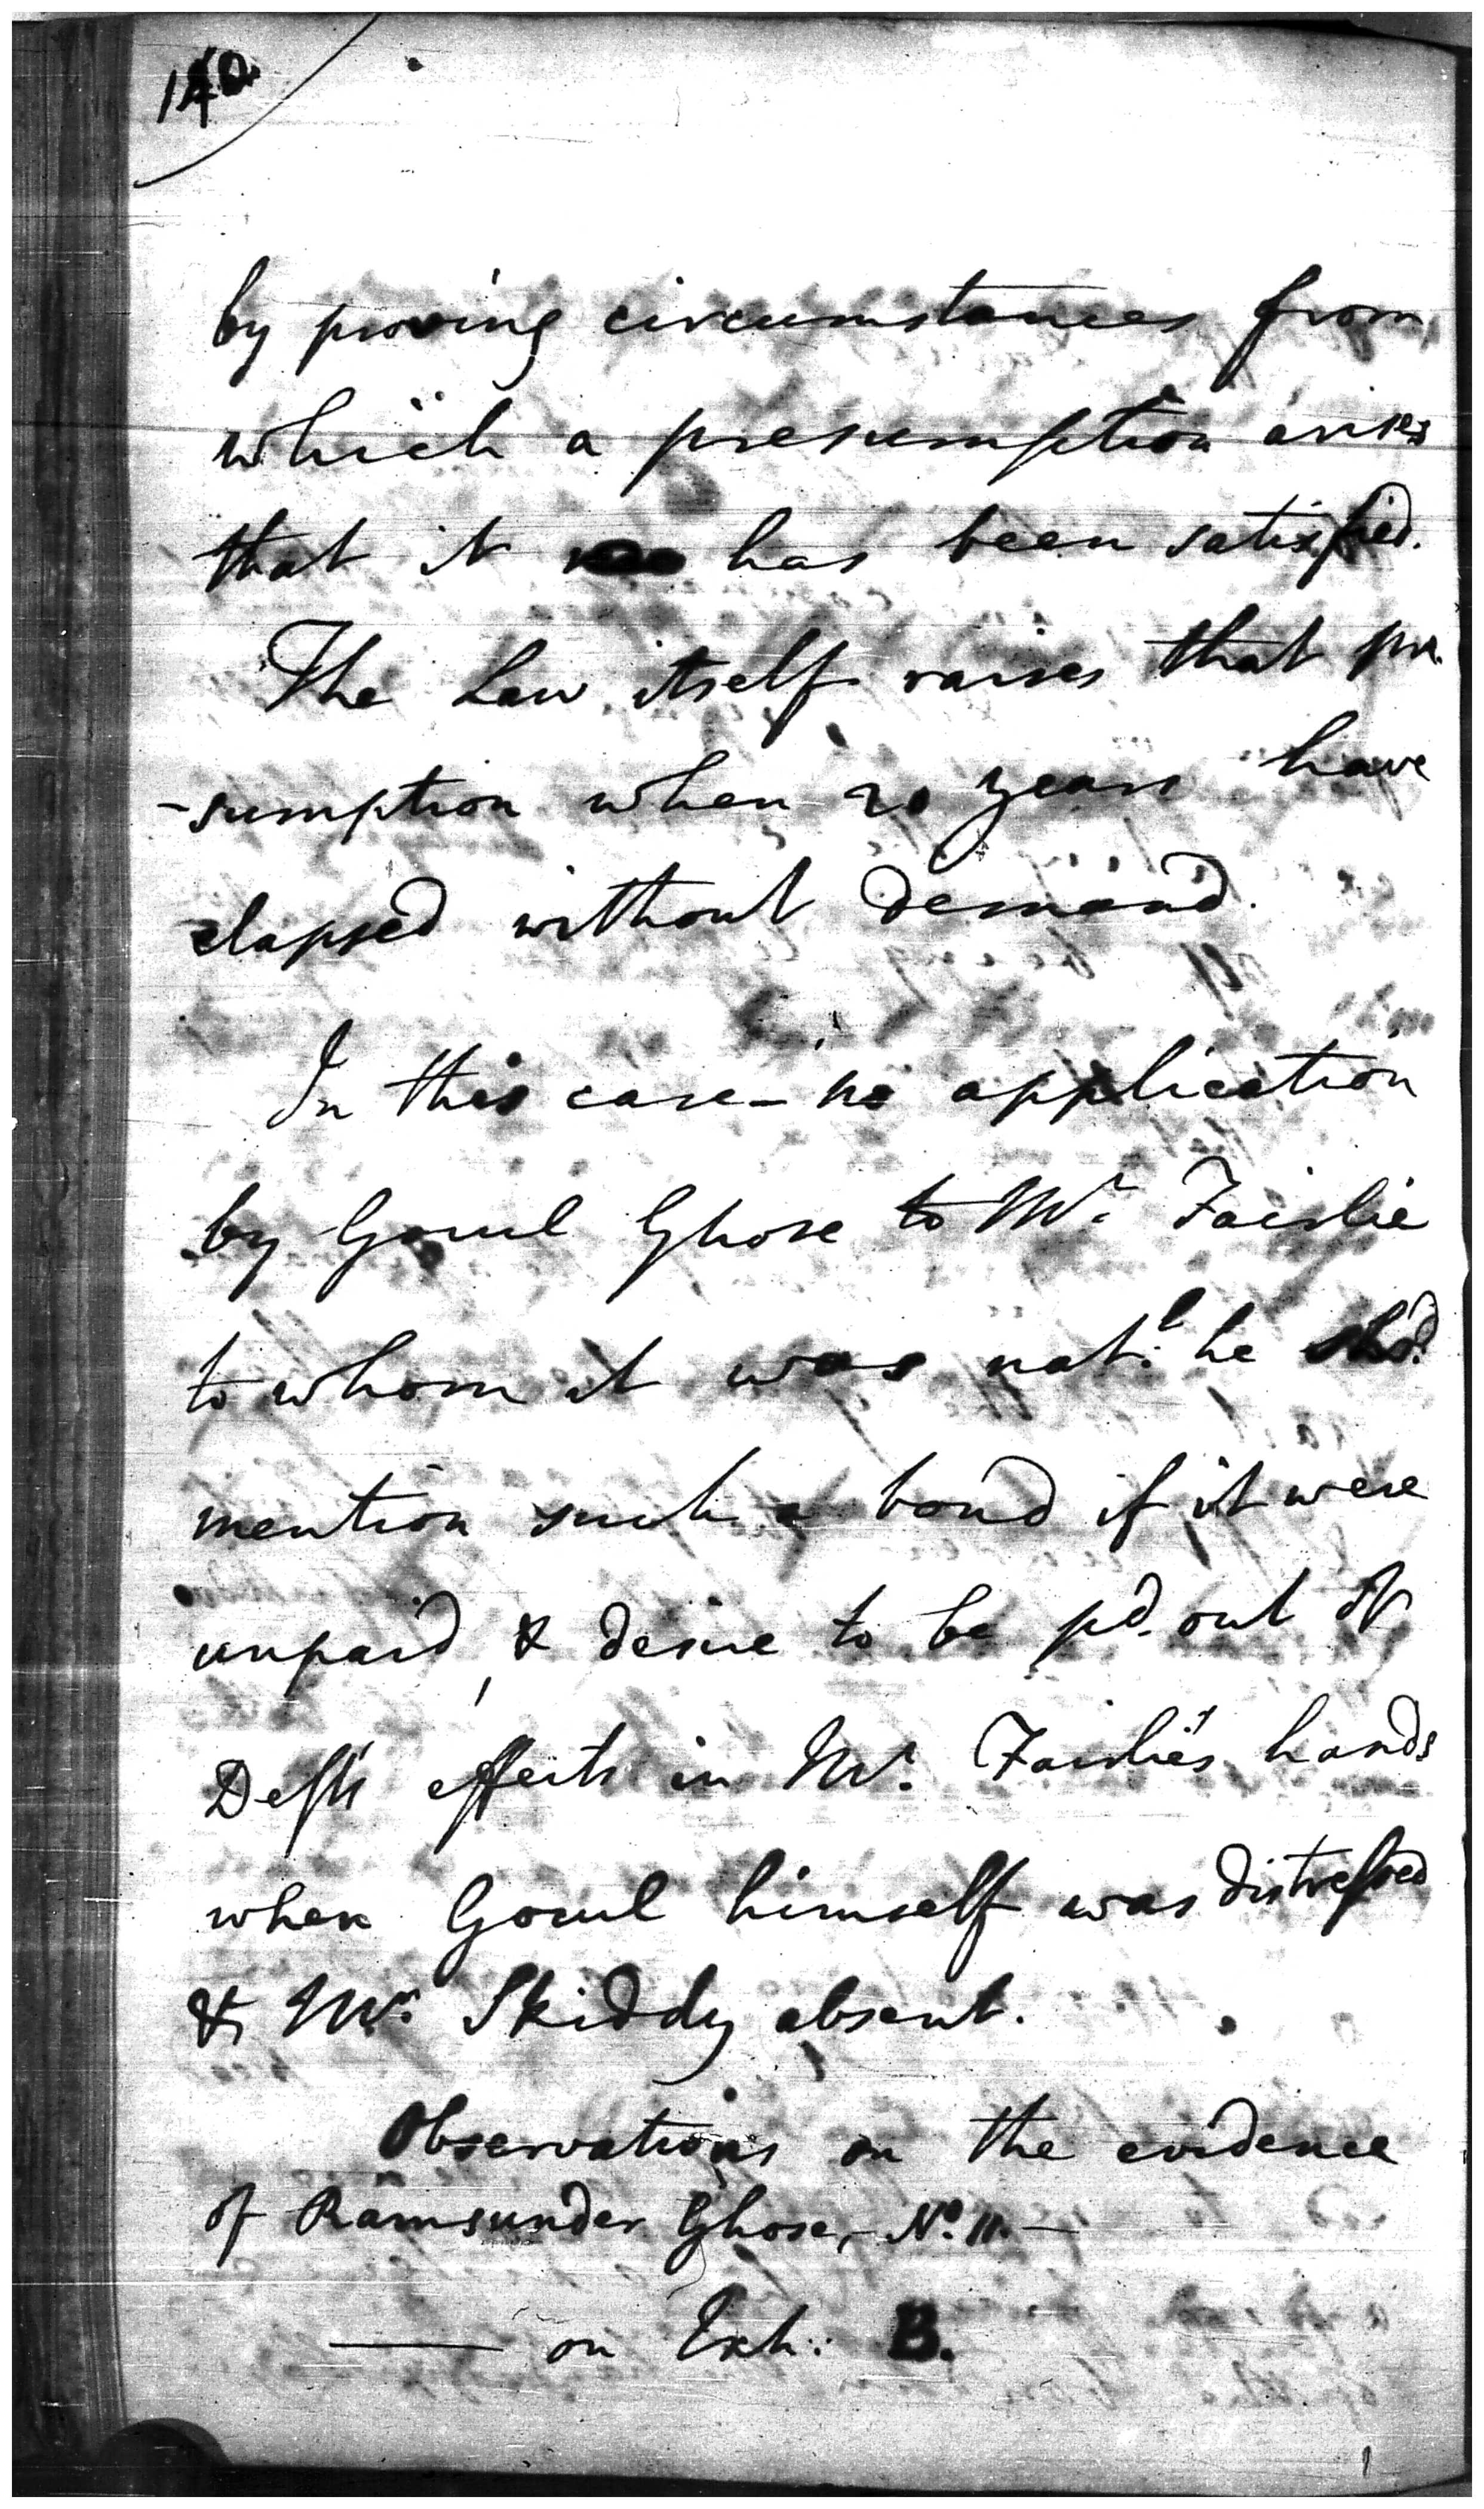 by proving circumstances from
which a presumption arises
that it has been satisfied.
The Law itself raises that pre
-sumption when 20 years have
elapsed without demand.
In this case - no application
by Gocul Ghose to Mr. Fairlie
to whom it was natl. he shod.
mention such a bond if it were
unpaid, & desire to be pd. out of
Deft's effects in Mr. Fairlie's hands
when Gocul himself was distressed
& Mr. Skiddy absent.
Observations on the evidence
of Ramsunder Ghose, No. 11. —
— on Exh: B.